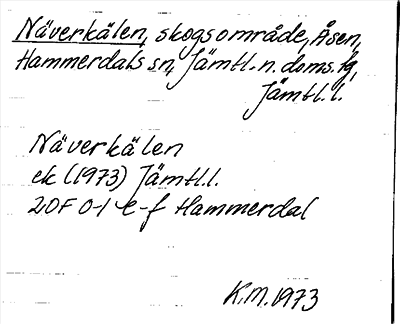 Näverkälen, skogsområde, Åsen,
Hammerdals sn, Jämtl. n. doms. fg,
Jämtl. l.
Näverkälen
ek (1973) Jämtl.l.
20F 0-1 e-f Hammerdal
K.M. 1973